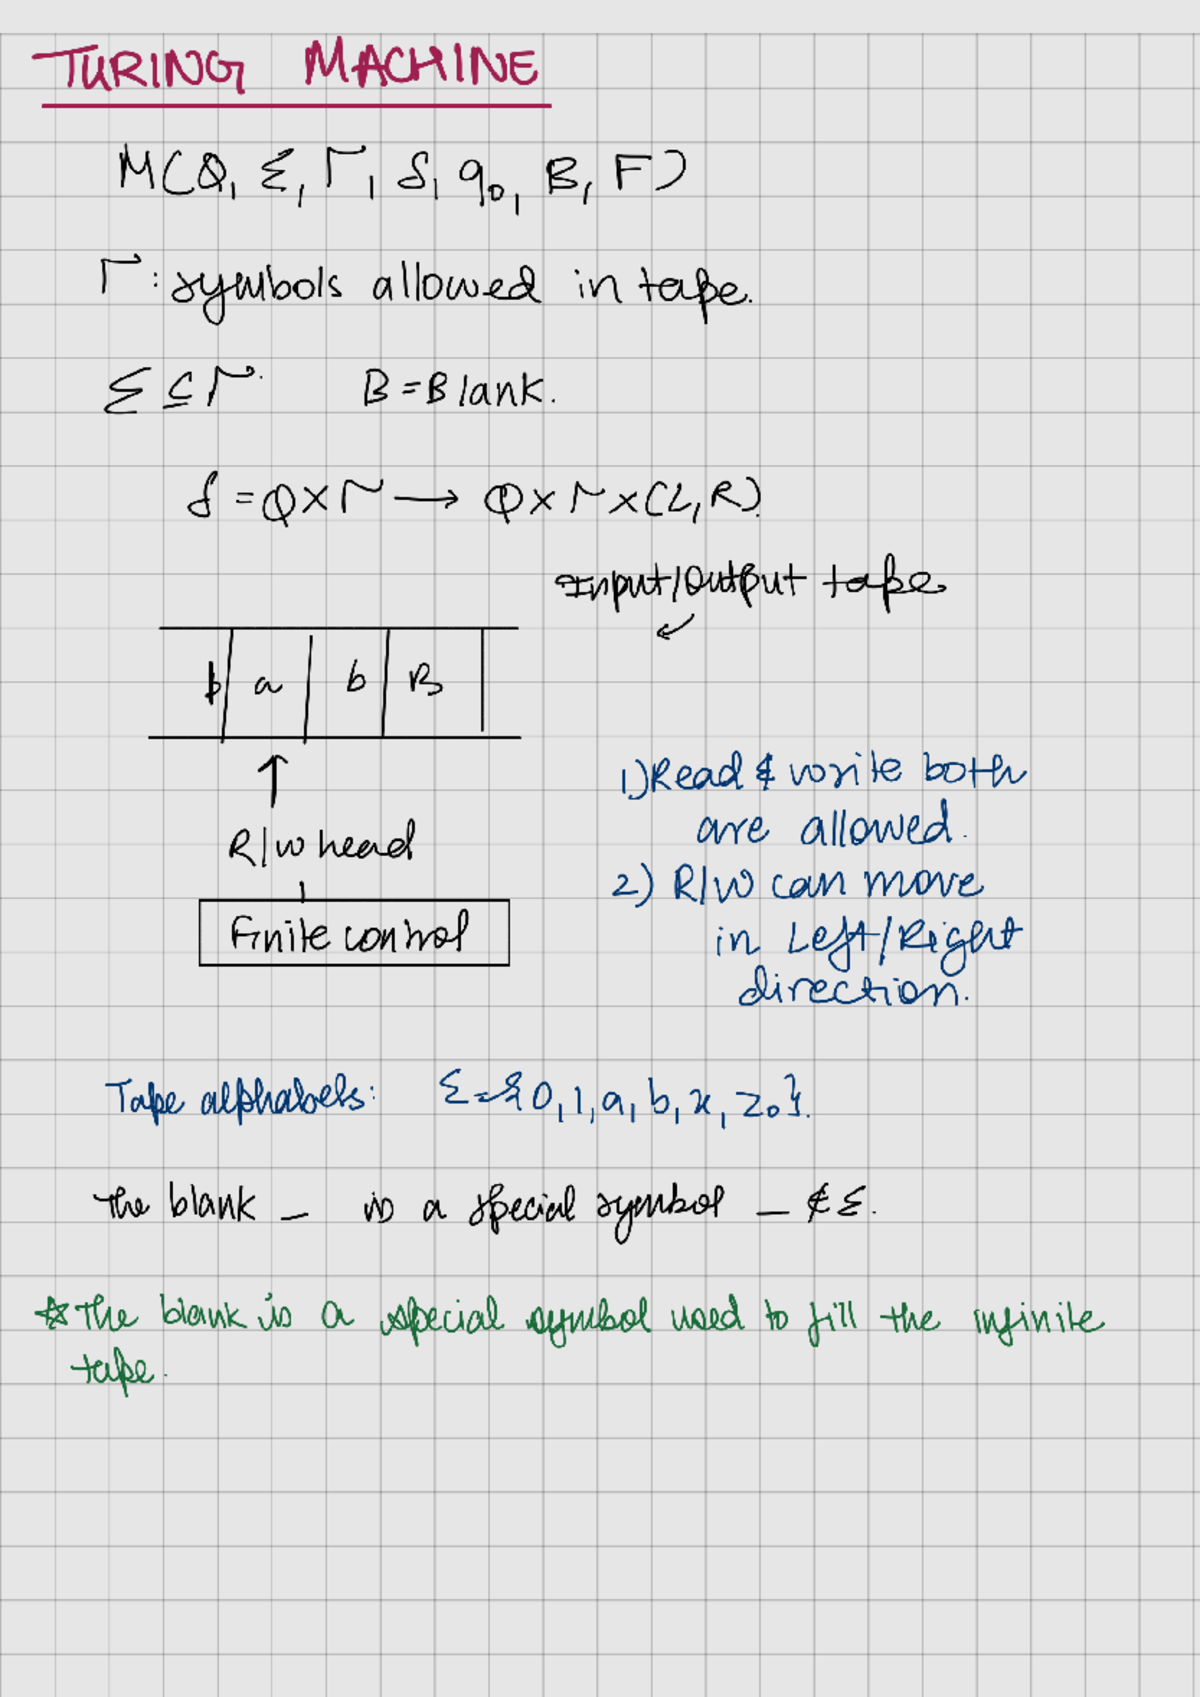 TURING MACHINE
M(Q, Σ, Γ, δ, q₀, B, F)
Γ: symbols allowed in tape.
Σ ⊆ Γ. B = Blank.
δ = Q × Γ → Q × Γ × (L, R).
Input/Output tape
a b B
R/W head
Finite control
1) Read & write both
are allowed.
2) R/W can move
in Left/Right
direction.
Tape alphabets: Σ = {0, 1, a, b, x, z₀}.
The blank _ is a special symbol _ ∉ Σ.
☆ The blank is a special symbol used to fill the infinite
tape.